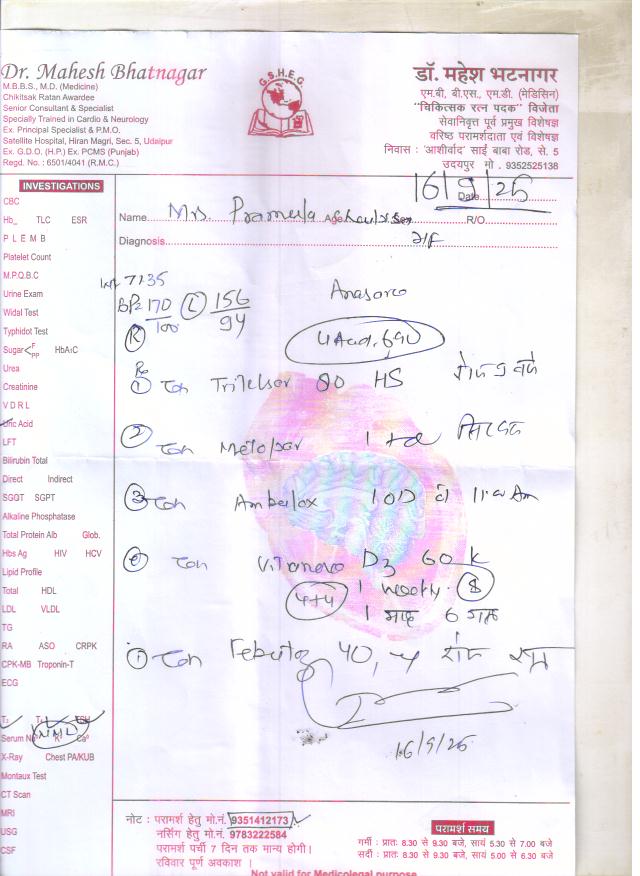 Dr. Mahesh Bhatnagar
M.B.B.S., M.D. (Medicine)
Chikitsak Ratan Awardee
Senior Consultant & Specialist
Specially Trained in Cardio & Neurology
Ex. Principal Specialist & P.M.O.
Satellite Hospital, Hiran Magri, Sec. 5, Udaipur
Ex. G.D.O. (H.P.) Ex. PCMS (Punjab)
Regd. No. : 6501/4041 (R.M.C.)
G.S.H.E.G.
डॉ. महेश भटनागर
एम.बी. बी.एस., एम.डी. (मेडिसिन)
"चिकित्सक रत्न पदक" विजेता
सेवानिवृत्त पूर्व प्रमुख विशेषज्ञ
वरिष्ठ परामर्शदाता एवं विशेषज्ञ
निवास : 'आशीर्वाद' साई बाबा रोड, से. 5
उदयपुर मो . 9352525138
INVESTIGATIONS
CBC
Hb_ TLC ESR
P L E M B
Platelet Count
M.P.Q.B.C
Urine Exam
Widal Test
Typhidot Test
Sugar F PP HbA1C
Urea
Creatinine
V D R L
Uric Acid
LFT
Bilirubin Total
Direct Indirect
SGOT SGPT
Alkaline Phosphatase
Total Protein Alb Glob.
Hbs Ag HIV HCV
Lipid Profile
Total HDL
LDL VLDL
TG
RA ASO CRPK
CPK-MB Troponin-T
ECG
T3
Serum Na
X-Ray Chest PA/KUB
Montaux Test
CT Scan
MRI
USG
CSF
Date 16/9/25
Name Mrs. Prameela Age Sex R/O
Diagnosis
7135
BP 170/100 (L) 156/94
(R)
① 80 HS
② 1
③ 1 OD 11.00 Am
D3 60 K
4+4 1 weekly 8
1 माह 6
① 40, रोज
16/9/25
नोट : परामर्श हेतु मो.नं. 9351412173
नर्सिंग हेतु मो.नं. 9783222584
परामर्श पर्ची 7 दिन तक मान्य होगी।
रविवार पूर्ण अवकाश ।
परामर्श समय
गर्मी : प्रातः 8.30 से 9.30 बजे, सायं 5.30 से 7.00 बजे
सर्दी : प्रातः 8.30 से 9.30 बजे, सायं 5.00 से 6.30 बजे
Not valid for Medicolegal purpose